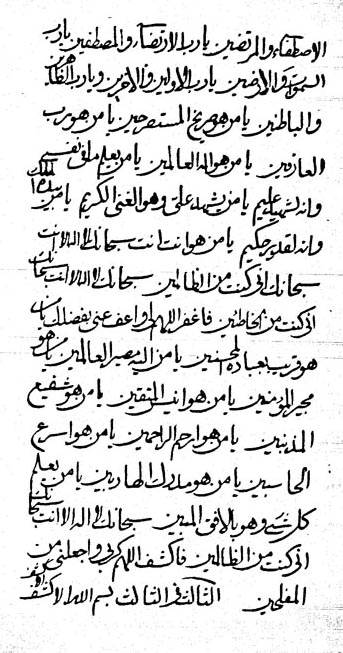 الاصطفاء والمرتضين يا رب الارتضاء والمصطفين يا رب
السموات والارضين يا رب الاولين والاخرين ويا رب الظاهرين
والباطنين يا من هو صريخ المستصرخين يا من هو رب
العارفين يا من هو اله العالمين يا من يعلم ما فى نفسى
وانه لسميع عليم يا من يشهد على وهو الغنى الكريم يا من
وانه لقدير حكيم يا من هو انت انت سبحانك لا اله الا انت
سبحانك انى كنت من الظالمين سبحانك لا اله الا انت سبحانك
انى كنت من الخاطئين فاغفر اللهم لى واعف عنى بفضلك يا من
هو قريب بعباده المحسنين يا من اليه مصير العالمين يا من هو
مجير المؤمنين يا من هو انيس المتقين يا من هو شفيع
المذنبين يا من هو ارحم الراحمين يا من هو اسرع
الحاسبين يا من هو مدرك الهاربين يا من يعلم
كل شىء وهو بالافق المبين سبحانك لا اله الا انت سبحانك
انى كنت من الظالمين فاكشف اللهم كربى واجعلنى من
المفلحين الثالث فى الثالث بسم الله الاكشف